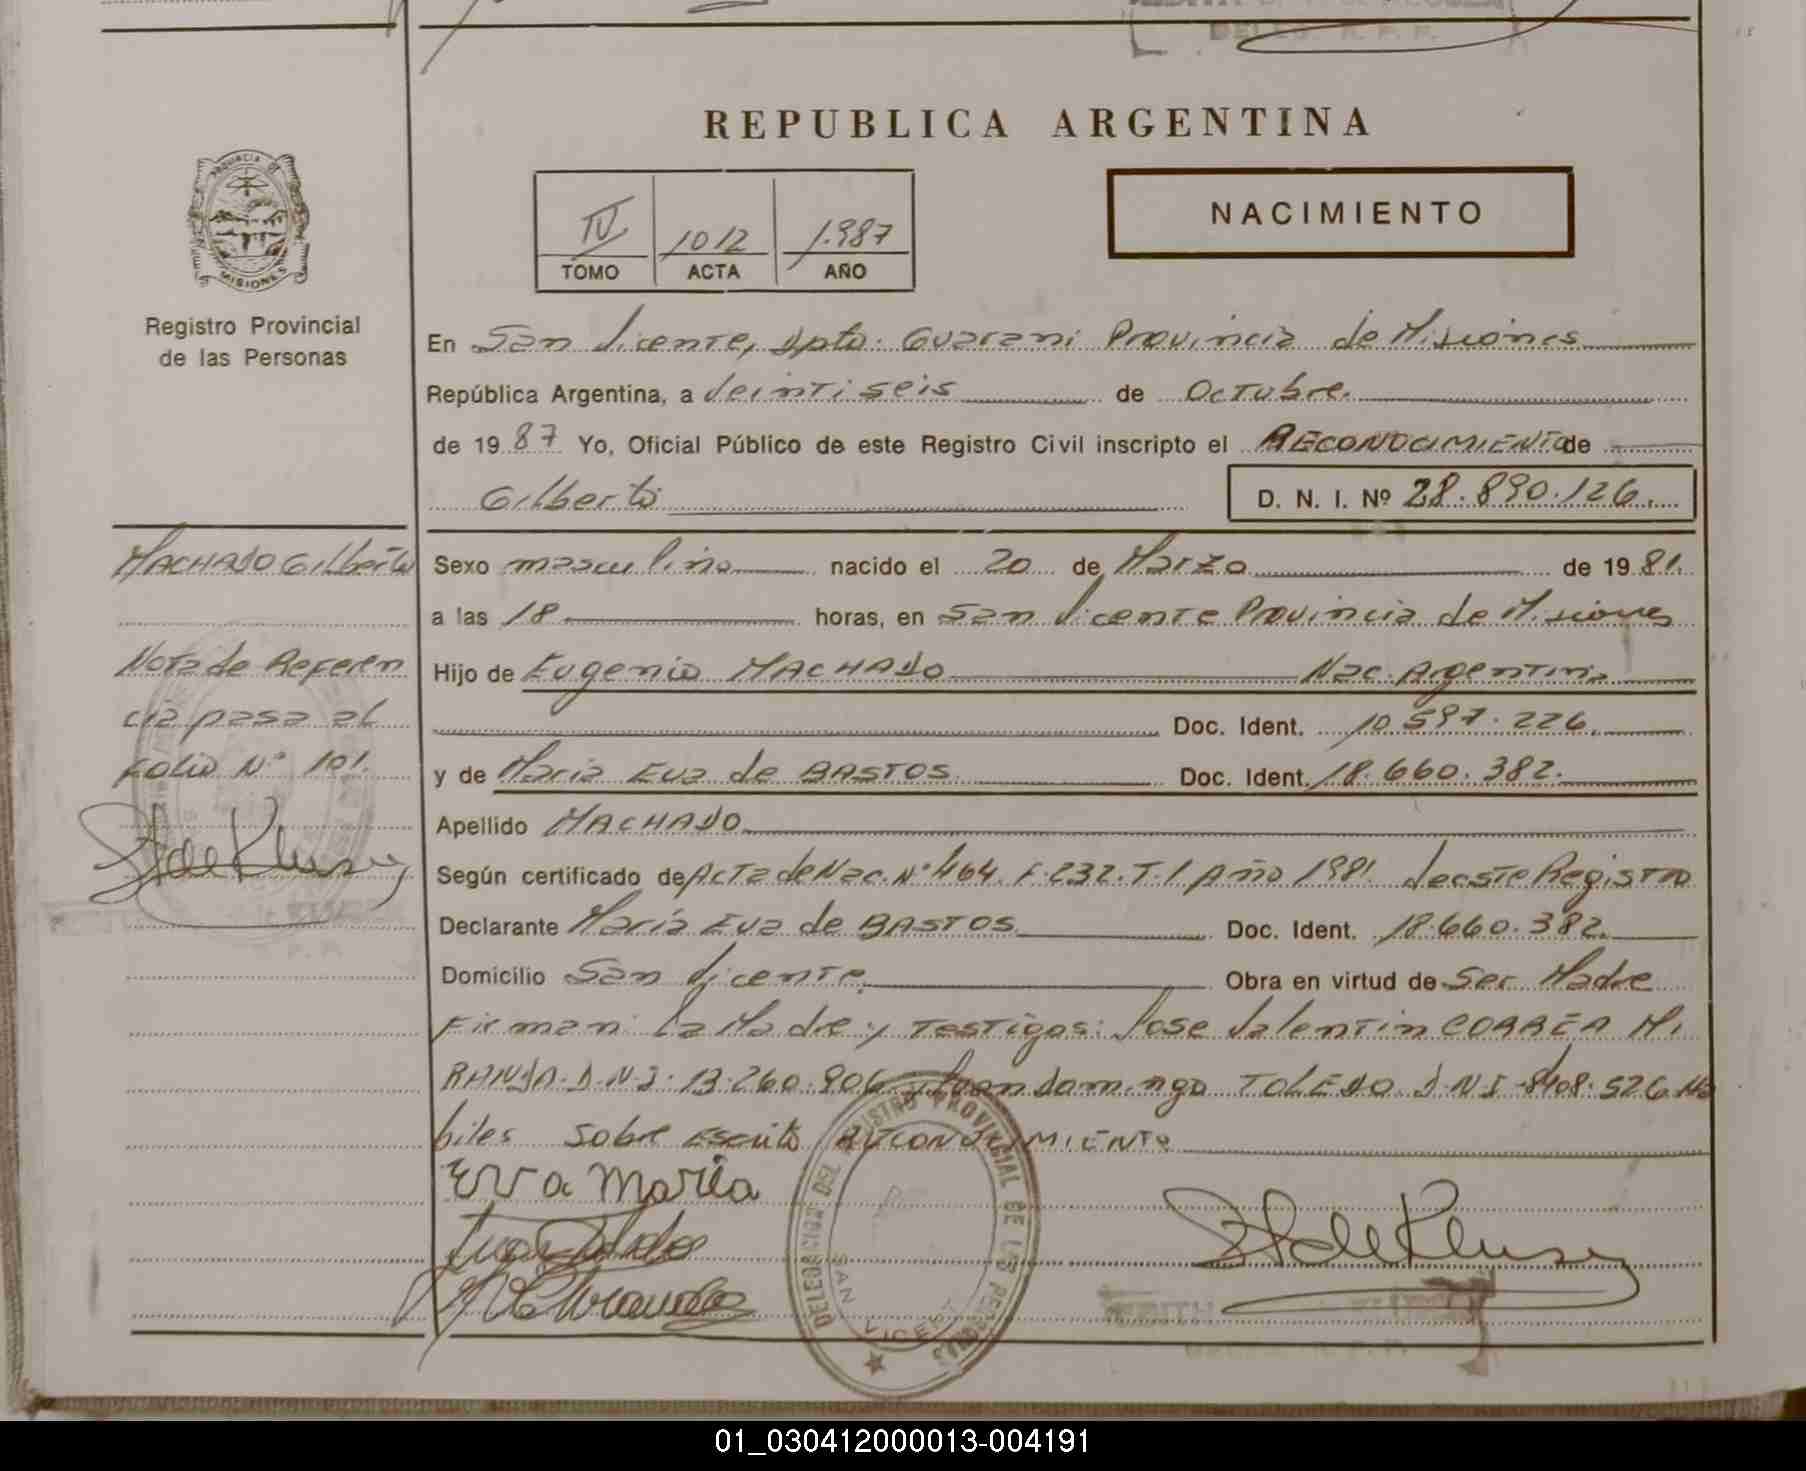 REPUBLICA ARGENTINA
PROVINCIA DE
MISIONES
Registro Provincial
de las Personas
IV 1012 1.987
TOMO ACTA AÑO
NACIMIENTO
En San Vicente, Dpto. Guarani Provincia de Misiones
República Argentina, a Veintiseis de Octubre.
de 1987 Yo, Oficial Público de este Registro Civil inscripto el RECONOCIMIENTO de
Gilberto D. N. I. Nº 28.890.126.
MACHADO Gilberto
Nota de Referen
cia pasa al
Folio Nº 101.
Sexo masculino nacido el 20 de Marzo de 1981.
a las 18 horas, en San Vicente Provincia de Misiones
Hijo de Eugenio MACHADO Nac. Argentina
Doc. Ident. 10.597.226.
y de Maria Eva de BASTOS Doc. Ident. 18.660.382.
Apellido MACHADO
Según certificado de Acta de Nac. Nº 464. F. 232. T. 1 Año 1981. de este Registro
Declarante Maria Eva de BASTOS Doc. Ident. 18.660.382.
Domicilio San Vicente. Obra en virtud de Ser Madre
Firman: La Madre y Testigos: Jose Valentin CORREA MI
RANDA. D.N.I. 13.260.906 y Juan Domingo TOLEDO D.N.I. 8.408.526. Ha
biles Sobre Escrito RECONOCIMIENTO
Eva Maria
DELEGACION DEL REGISTRO PROVINCIAL DE LAS PERSONAS
SAN VICENTE
01_030412000013-004191